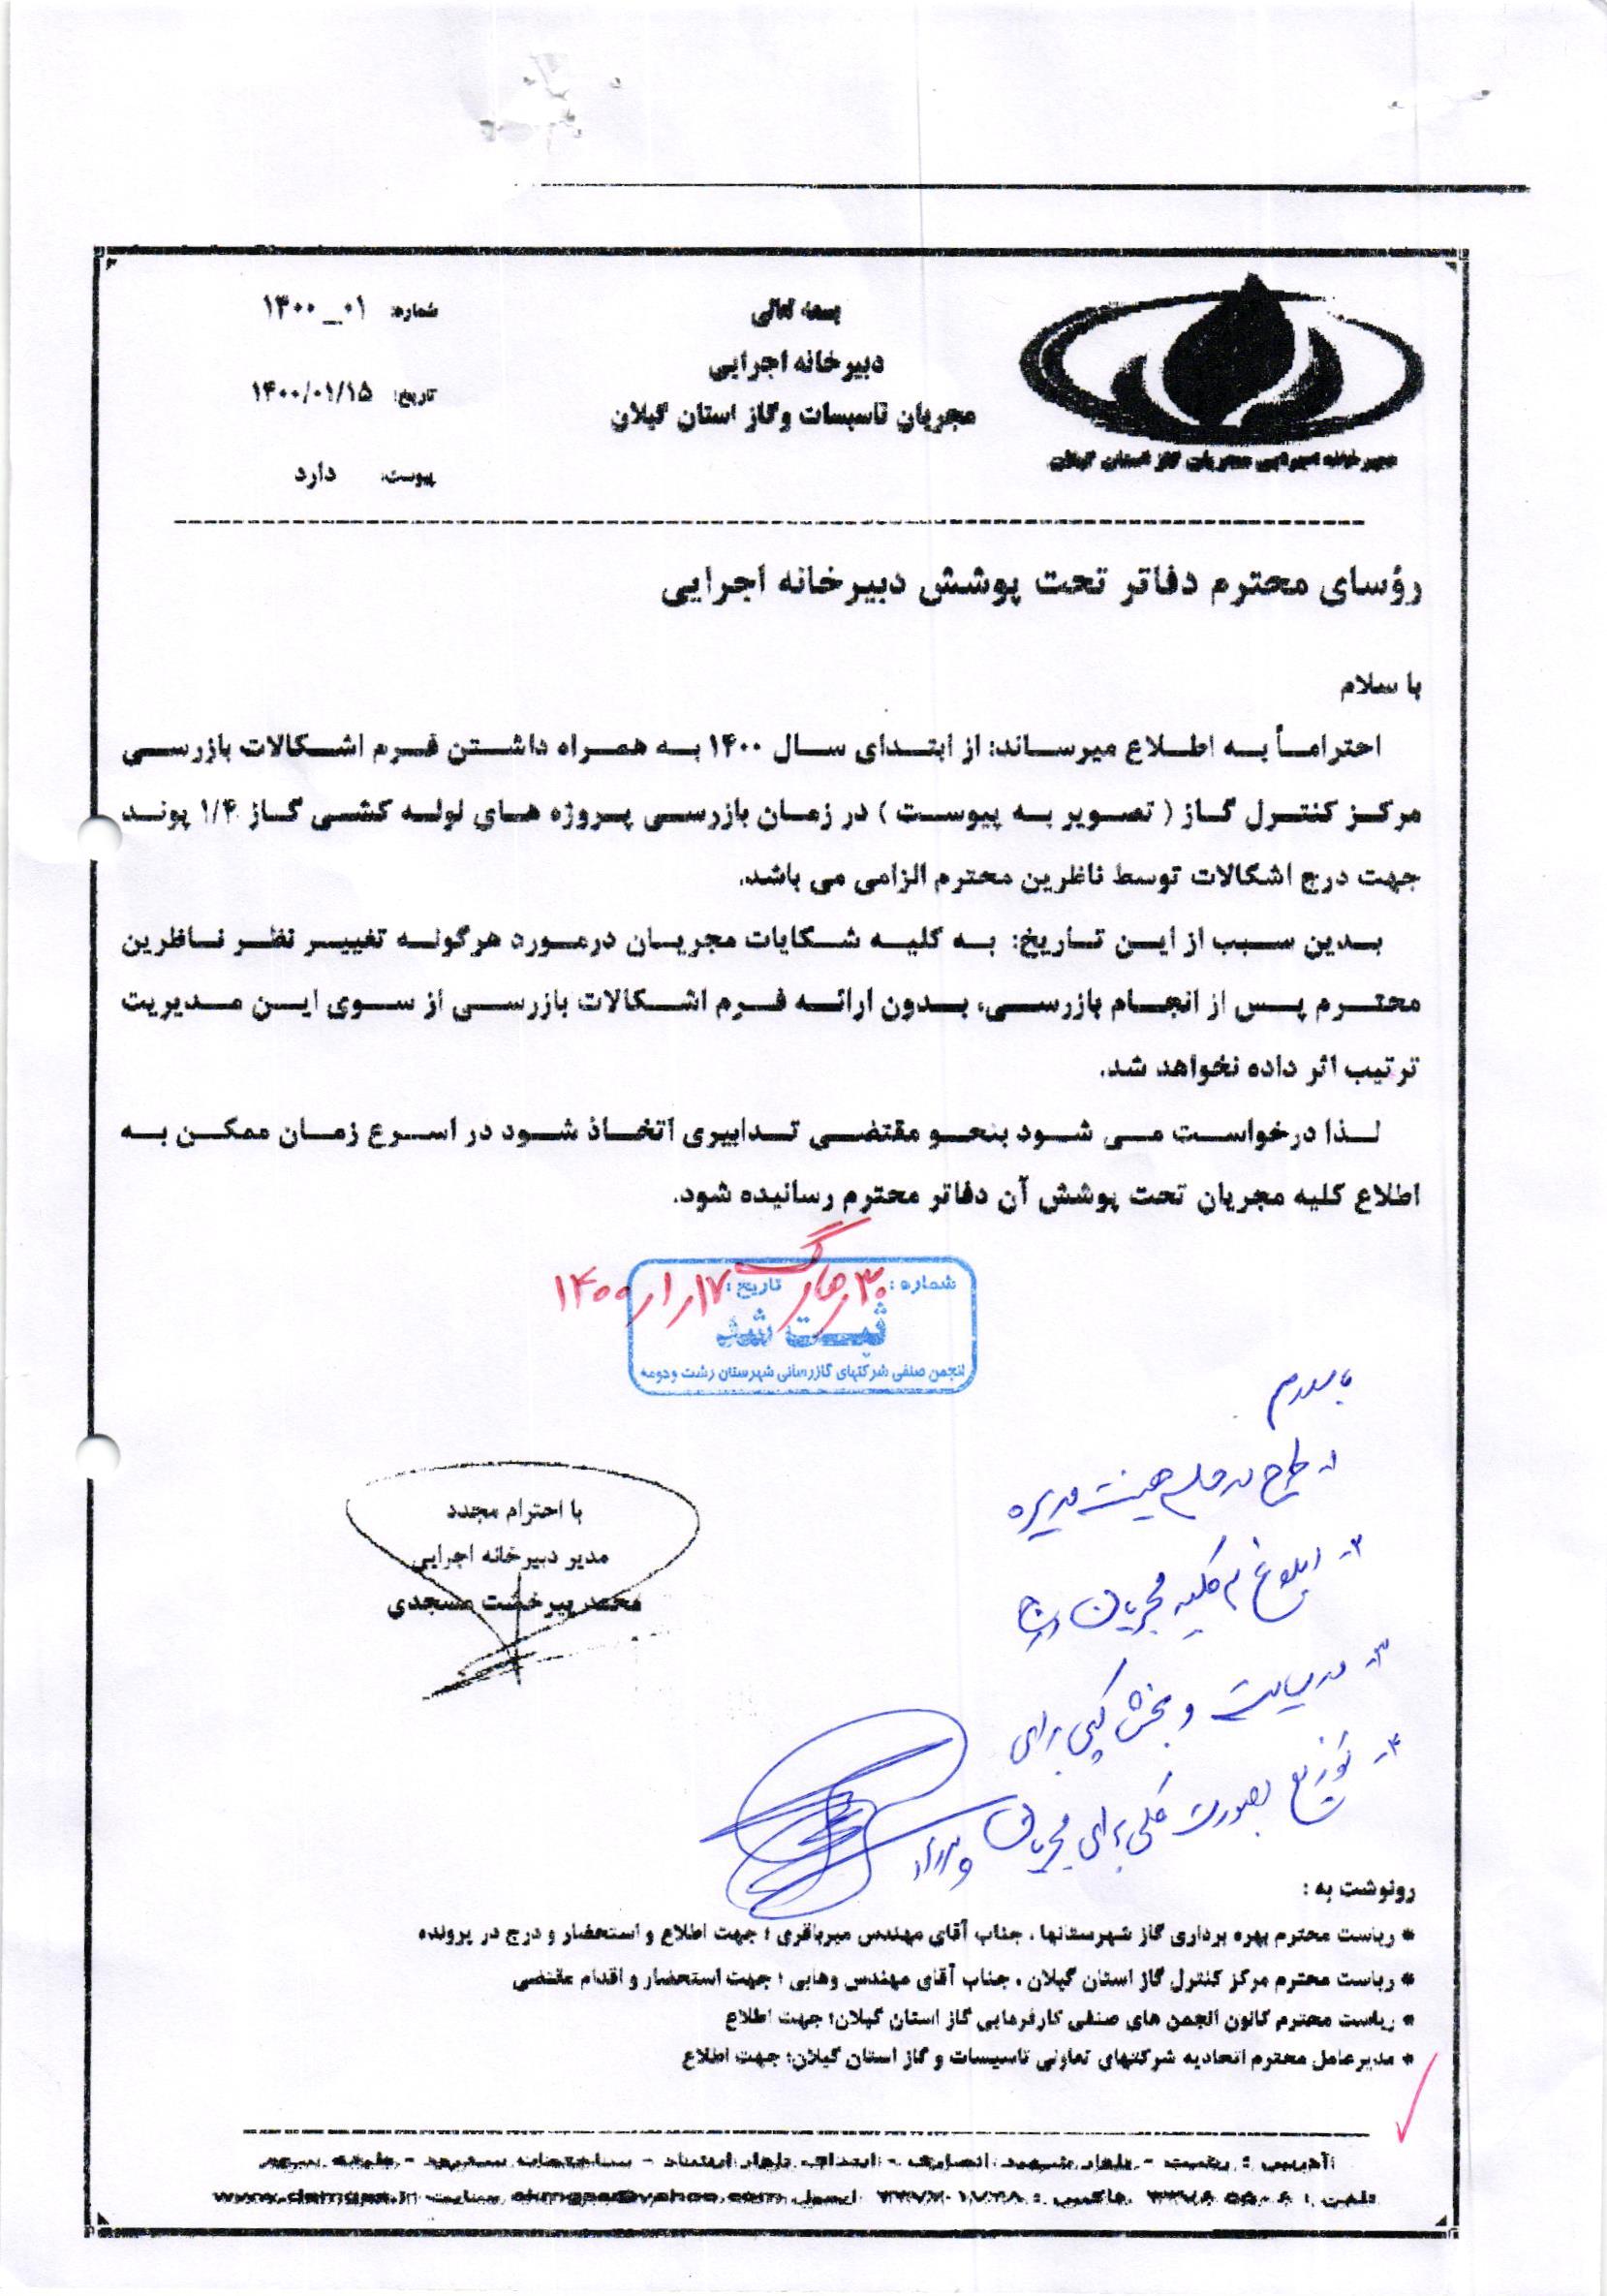 بسمه تعالی
دبیرخانه اجرایی
مجریان تاسیسات وگاز استان گیلان
دبیرخانه اجرایی مجریان گاز استان گیلان
شماره: ۰۱_۱۴۰۰
تاریخ: ۱۴۰۰/۰۱/۱۵
پیوست: دارد
رؤسای محترم دفاتر تحت پوشش دبیرخانه اجرایی
با سلام
احتراماً به اطلاع میرساند: از ابتدای سال ۱۴۰۰ به همراه داشتن فرم اشکالات بازرسی
مرکز کنترل گاز ( تصویر به پیوست ) در زمان بازرسی پروژه های لوله کشی گاز ۱/۴ پوند
جهت درج اشکالات توسط ناظرین محترم الزامی می باشد.
بدین سبب از این تاریخ: به کلیه شکایات مجریان درمورد هرگونه تغییر نظر ناظرین
محترم پس از انجام بازرسی، بدون ارائه فرم اشکالات بازرسی از سوی این مدیریت
ترتیب اثر داده نخواهد شد.
لذا درخواست می شود بنحو مقتضی تدابیری اتخاذ شود در اسرع زمان ممکن به
اطلاع کلیه مجریان تحت پوشش آن دفاتر محترم رسانیده شود.
شماره: تاریخ: ۱۴۰۰/۱/۱۷
ثبت شد
انجمن صنفی شرکتهای گازرسانی شهرستان رشت وحومه
با احترام مجدد
مدیر دبیرخانه اجرایی
محمد پیرخشت مسجدی
باسلام
۱- طرح در جلسه هیئت مدیره
۲- ابلاغ به کلیه مجریان
۳- در سایت و بخش کپی برای
۴- توزیع بصورت کلی برای مجریان
رونوشت به :
* ریاست محترم بهره برداری گاز شهرستانها ، جناب آقای مهندس میرباقری ؛ جهت اطلاع و استحضار و درج در پرونده
* ریاست محترم مرکز کنترل گاز استان گیلان ، جناب آقای مهندس وهابی ؛ جهت استحضار و اقدام مقتضی
* ریاست محترم کانون انجمن های صنفی کارفرمایی گاز استان گیلان؛ جهت اطلاع
* مدیرعامل محترم اتحادیه شرکتهای تعاونی تاسیسات و گاز استان گیلان؛ جهت اطلاع
آدرس : رشت - بلوار شهید انصاری - ابتدای بلوار استاد - ساختمان سپید - طبقه سوم
تلفن : فاکس : ایمیل سایت